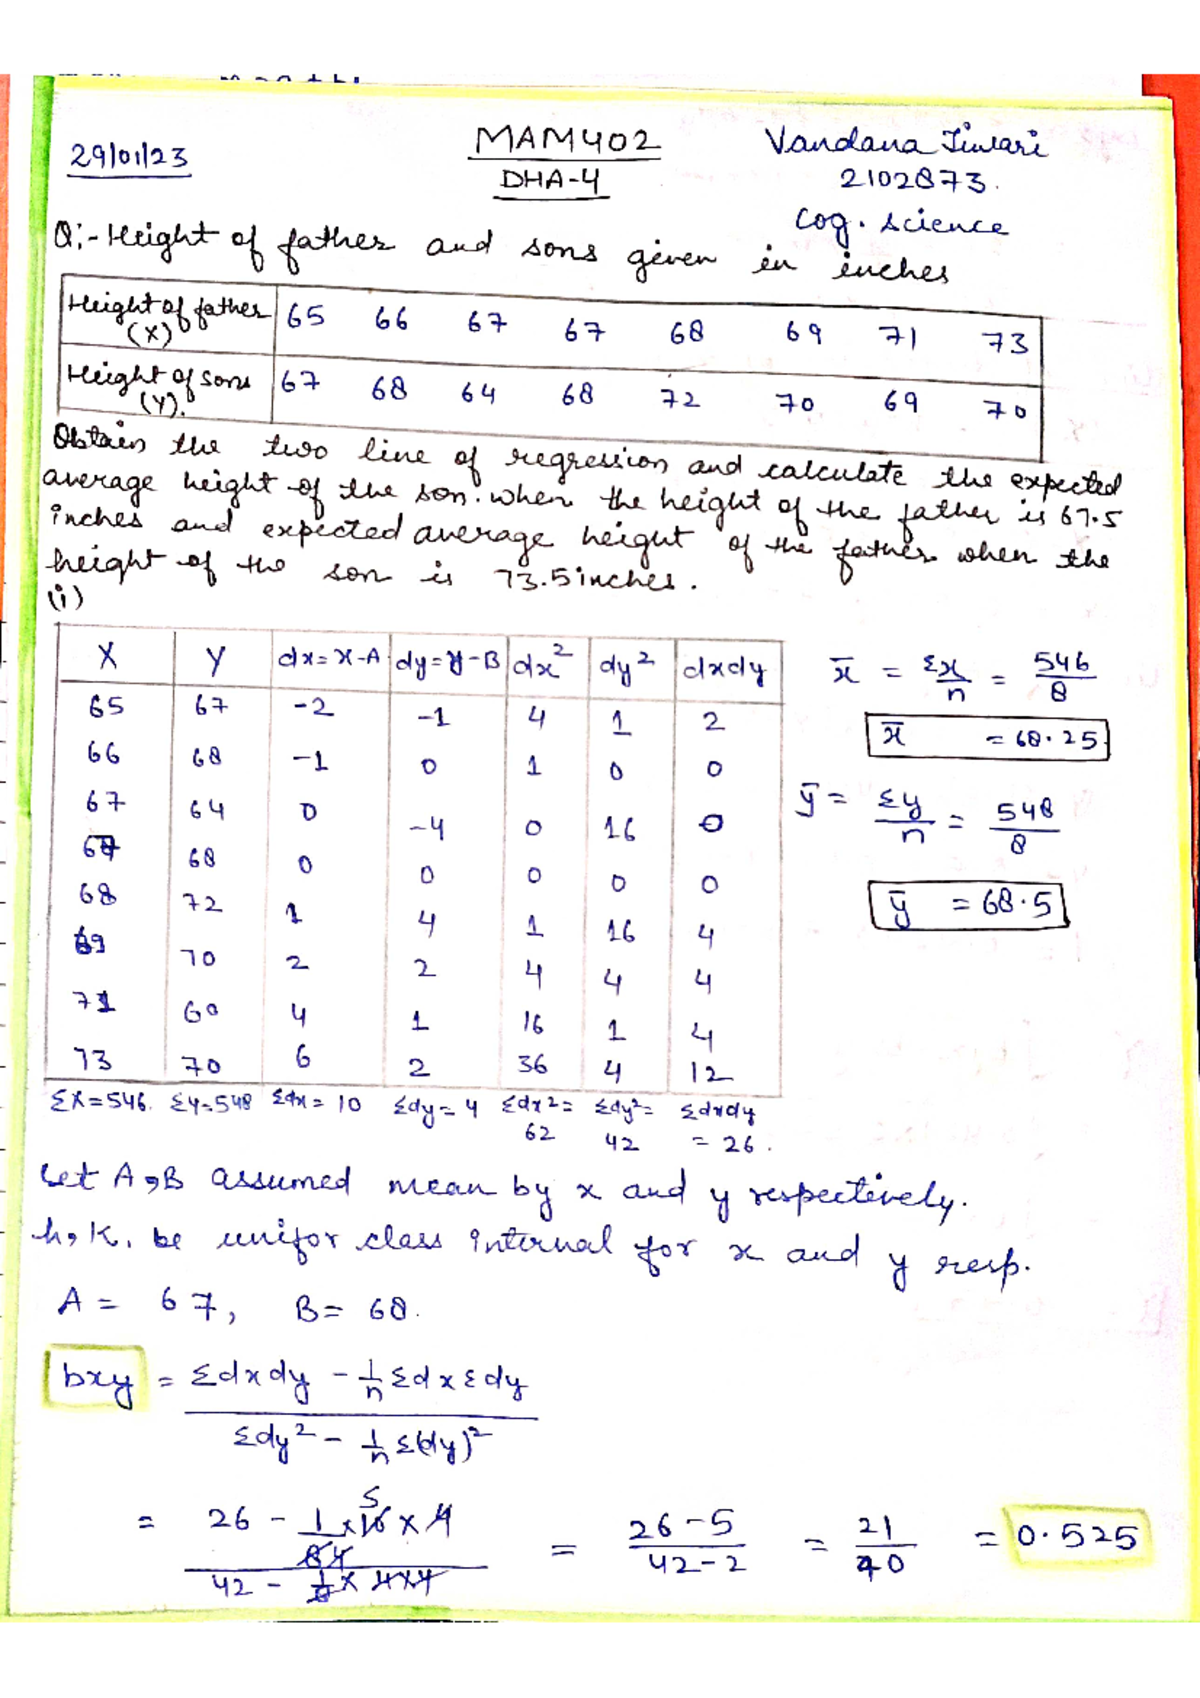 29/01/23
MAM402
DHA-4
Vandana Tiwari
2102873.
Cog. Science
Q:- Height of father and sons given in inches
Height of father (X) 65 66 67 67 68 69 71 73
Height of sons (Y). 67 68 64 68 72 70 69 70
Obtain the two line of regression and calculate the expected
average height of the son. when the height of the father is 67.5
inches and expected average height of the father when the
height of the son is 73.5 inches.
(i)
X Y dx = x-A dy = y-B dx² dy² dxdy
65 67 -2 -1 4 1 2
66 68 -1 0 1 0 0
67 64 0 -4 0 16 0
67 68 0 0 0 0 0
68 72 1 4 1 16 4
69 70 2 2 4 4 4
71 69 4 1 16 1 4
73 70 6 2 36 4 12
ΣX=546. Σy=548 Σdx = 10 Σdy = 4 Σdx² = 62 Σdy² = 42 Σdxdy = 26.
x̄ = Σx/n = 546/8
x̄ = 68.25
ȳ = Σy/n = 548/8
ȳ = 68.5
Let A,B assumed mean by x and y respectively.
h, K, be unifor class internal for x and y resp.
A = 67, B = 68.
bxy = (Σdxdy - 1/n Σdx Σdy) / (Σdy² - 1/n Σ(dy)²)
= (26 - 1/8 × 10 × 4) / (42 - 1/8 × 4×4) = (26-5)/(42-2) = 21/40 = 0.525